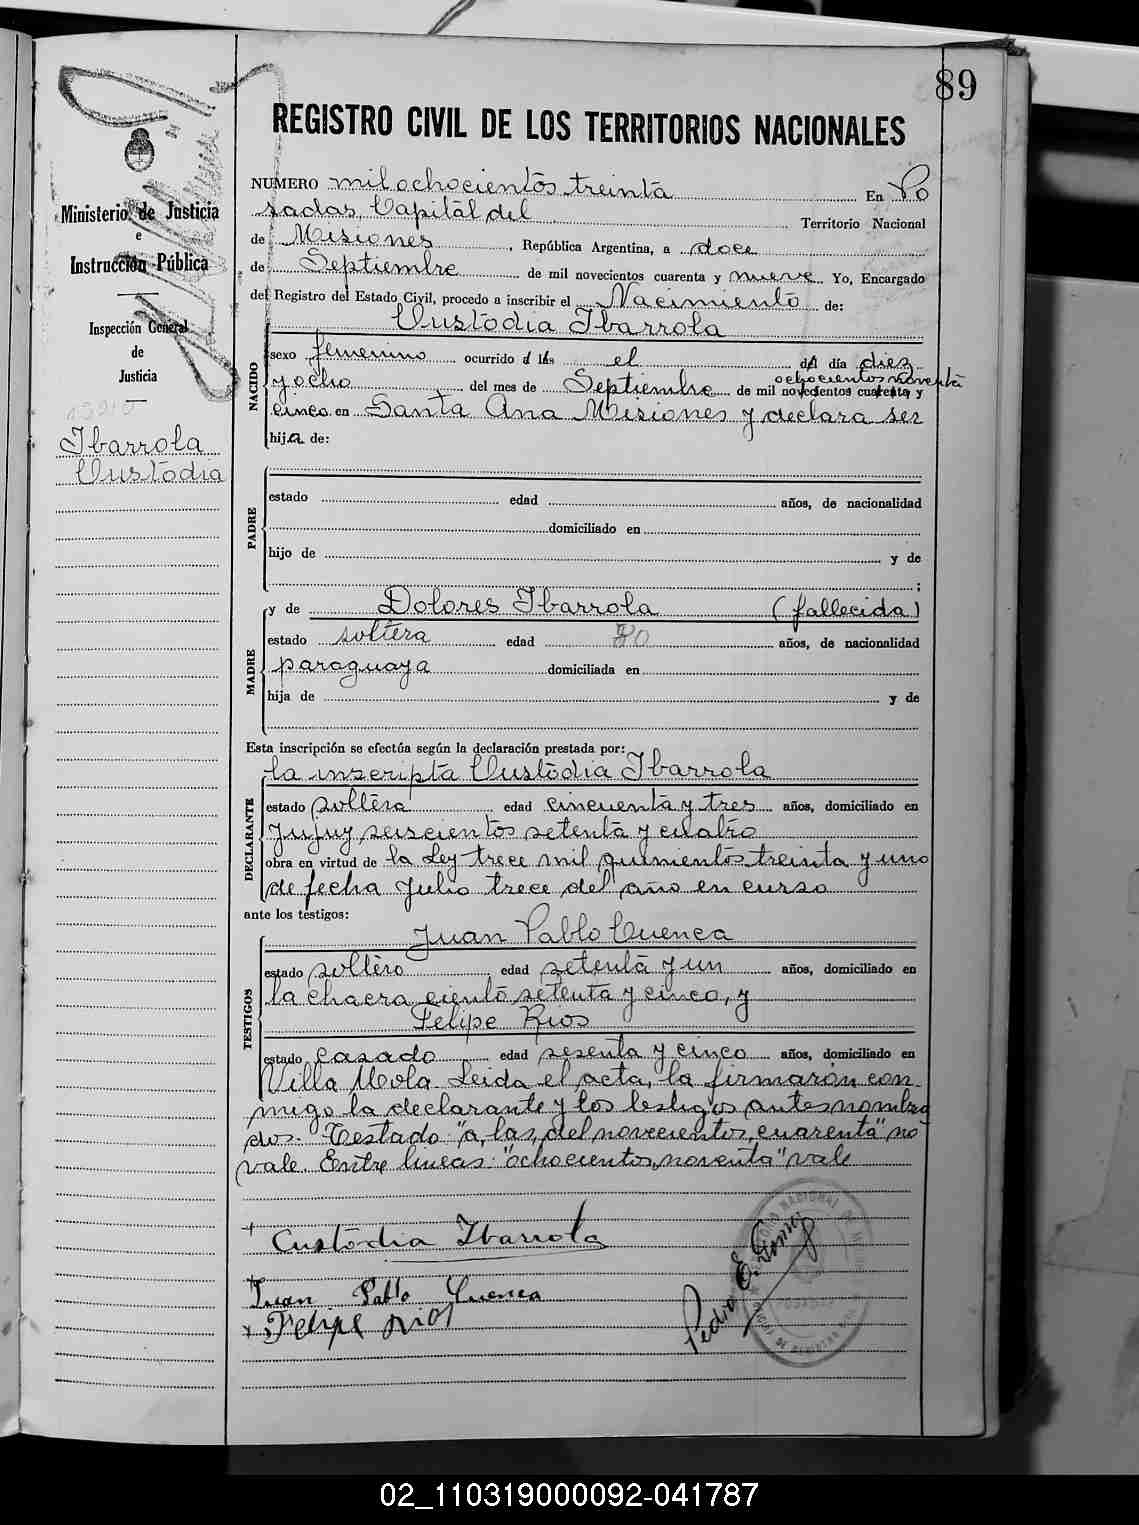 89
REGISTRO CIVIL DE LOS TERRITORIOS NACIONALES
Ministerio de Justicia
e
Instrucción Pública
Inspección General
de
Justicia
Ibarrola
Custodia
NUMERO mil ochocientos treinta En Po
sadas, Capital del Territorio Nacional
de Misiones, República Argentina, a doce
de Septiembre de mil novecientos cuarenta y nueve Yo, Encargado
del Registro del Estado Civil, procedo a inscribir el Nacimiento de:
NACIDO
Custodia Ibarrola
sexo femenino ocurrido a las el del día diez
ochocientos noventa
y ocho del mes de Septiembre de mil novecientos cuarenta y
cinco en Santa Ana Misiones y declara ser
hija de:
PADRE
estado edad años, de nacionalidad
domiciliado en
hijo de y de
;
MADRE
y de Dolores Ibarrola (fallecida)
estado soltera edad años, de nacionalidad
paraguaya domiciliada en
hija de y de
Esta inscripción se efectúa según la declaración prestada por:
DECLARANTE
la inscripta Custodia Ibarrola
estado soltera edad cincuenta y tres años, domiciliado en
Jujuy seiscientos setenta y cuatro
obra en virtud de la Ley trece mil quinientos treinta y uno
de fecha Julio trece del año en curso
ante los testigos:
TESTIGOS
Juan Pablo Cuenca
estado soltero edad setenta y un años, domiciliado en
la chacra ciento setenta y cinco, y
Felipe Rios
estado casado edad sesenta y cinco años, domiciliado en
Villa Mola. Leida el acta, la firmarón con
migo la declarante y los testigos antes nombra
dos. Testado: "a, las, del novecientos, cuarenta" no
vale. Entre lineas: "ochocientos, noventa" vale
Custodia Ibarrola
Juan Pablo Cuenca
Felipe Rios
Pedro E. Gomez
02_110319000092-041787